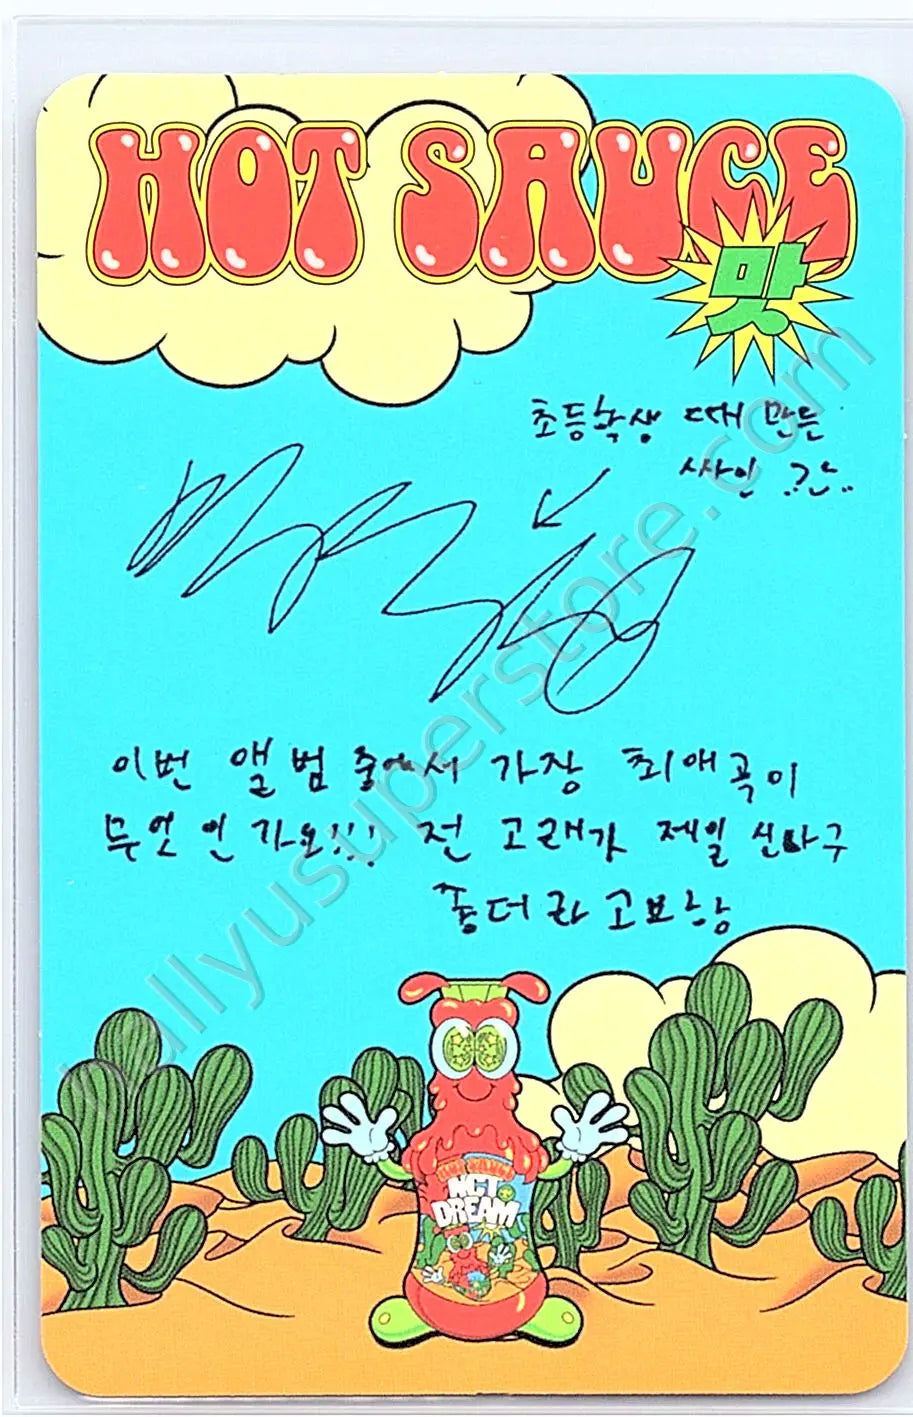 HOT SAUCE
맛
초등학생 때 만든
싸인
이번 앨범 중에서 가장 최애곡이
무엇인가요!!! 전 고래가 제일 신나구
좋더라고요
HOT SAUCE
NCT
DREAM
hallyusuperstore.com